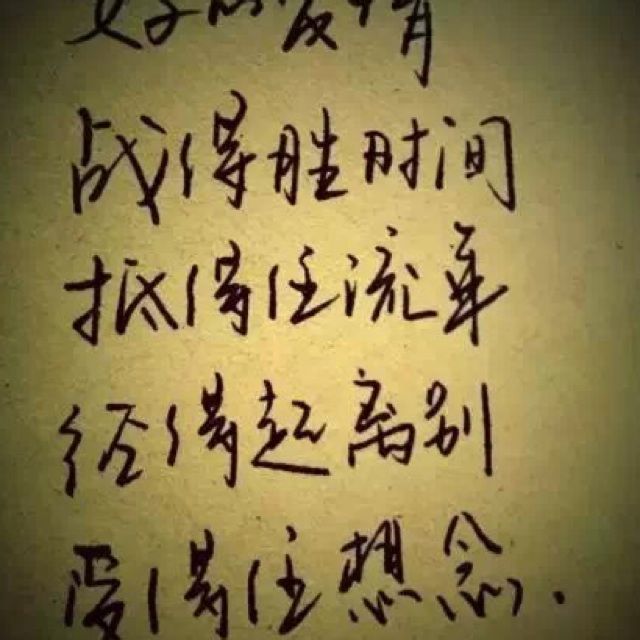 好的爱情
战得胜时间
抵得住流年
经得起离别
受得住想念.